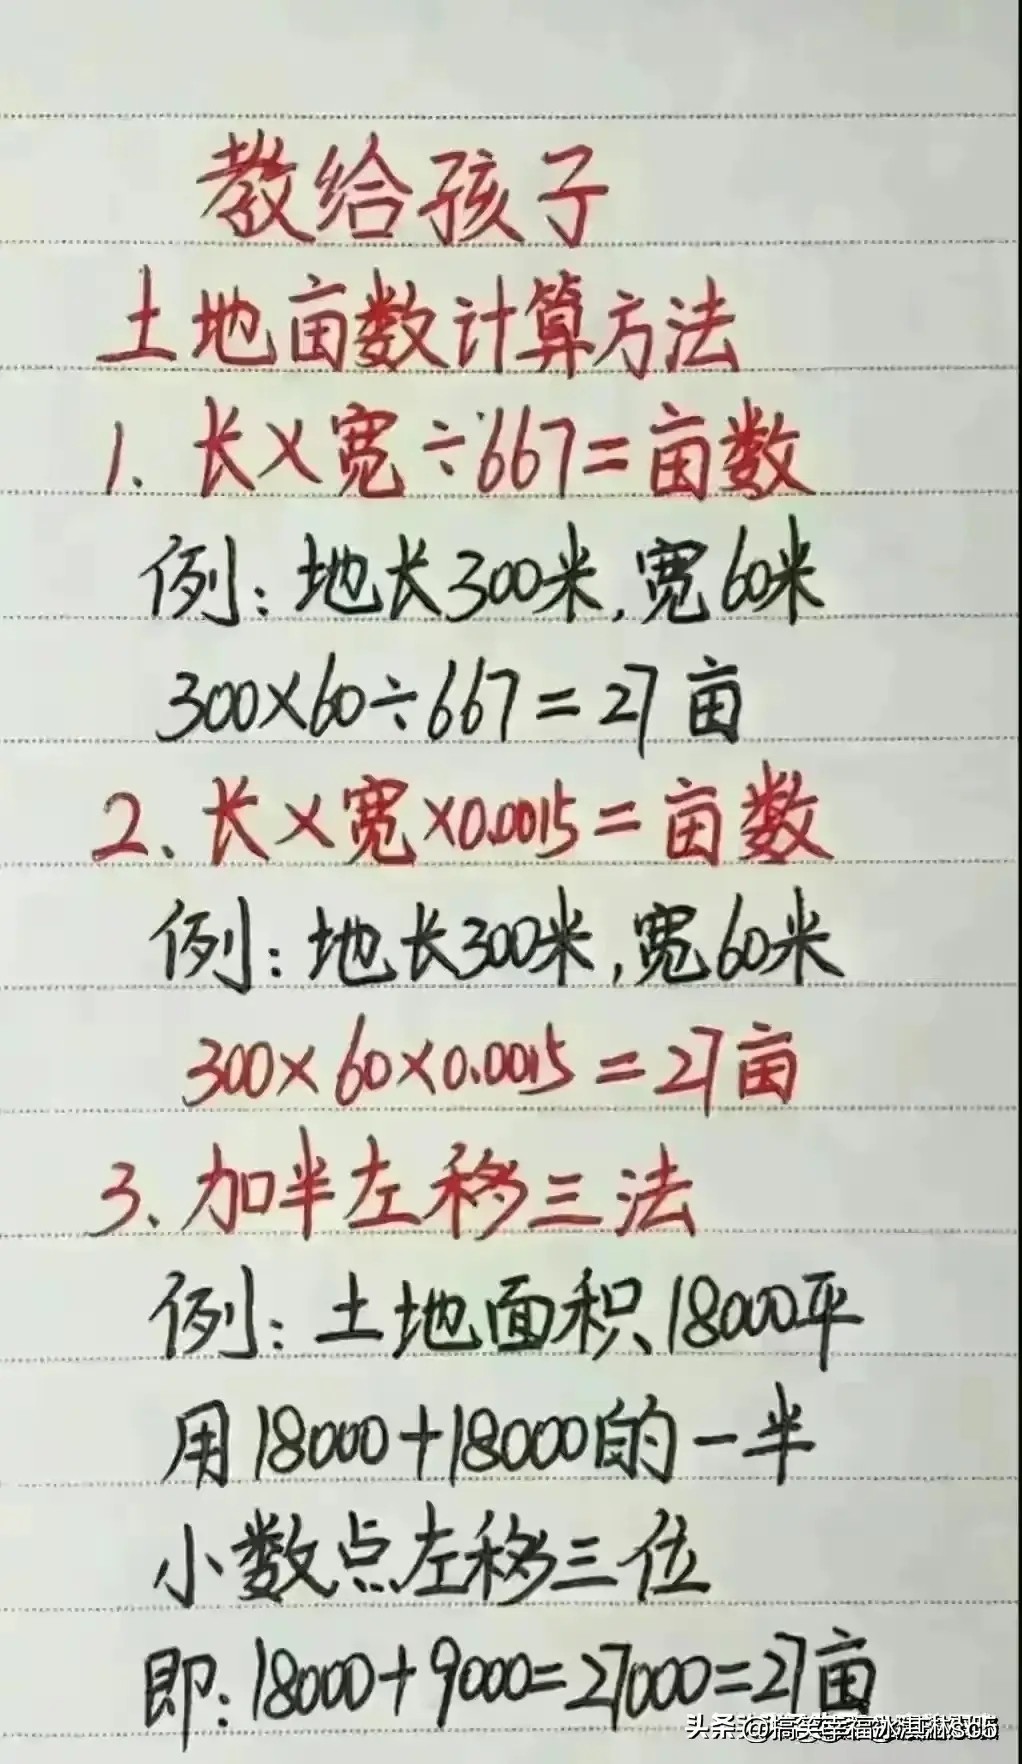 教给孩子
土地亩数计算方法
1、长×宽÷667=亩数
例:地长300米,宽60米
300×60÷667=27亩
2、长×宽×0.0015=亩数
例:地长300米,宽60米
300×60×0.0015=27亩
3、加半左移三法
例:土地面积18000平
用18000+18000的一半
小数点左移三位
即:18000+9000=27000=27亩
头条@搞笑幸福冰淇淋